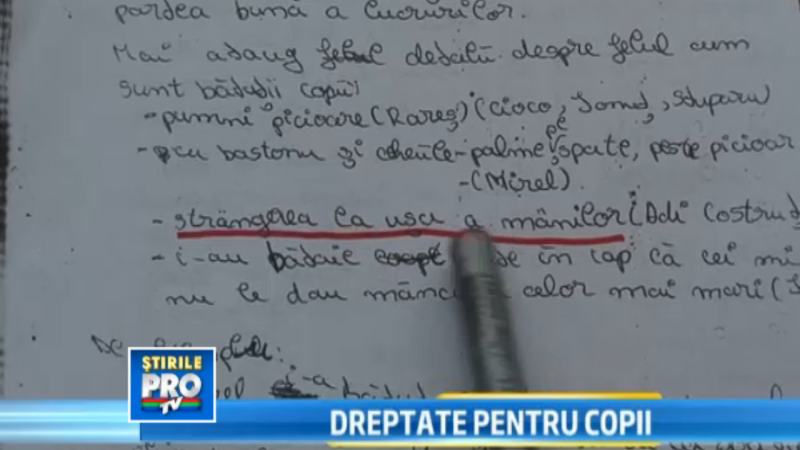 partea bună a lucrurilor.
Mai adaug detalii despre felul cum
sunt bătuții copii
- pumni picioare (Rareș) (cioco, Ionuț, stuparu)
- cu bastonu și cheile - palme pe spate, peste picioar
- (Mirel)
- strângerea la ușa a mânilor (Adi Costrud
- i-au bătaie în cap că cei mi
nu le dau mânc celor mai mari (
De
ȘTIRILE
PRO
TV
DREPTATE PENTRU COPII